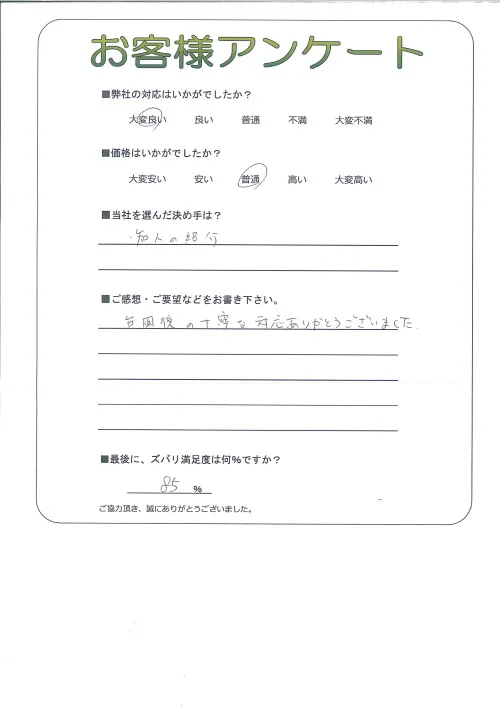 お客様アンケート
■弊社の対応はいかがでしたか？
大変良い 良い 普通 不満 大変不満
■価格はいかがでしたか？
大変安い 安い 普通 高い 大変高い
■当社を選んだ決め手は？
・知人の紹介
■ご感想・ご要望などをお書き下さい。
台風後の丁寧な対応ありがとうございました.
■最後に、ズバリ満足度は何%ですか？
85 %
ご協力頂き、誠にありがとうございました。